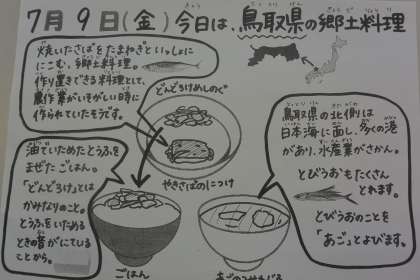 7月9日(金) 今日は、鳥取県の郷土料理
きょう
とっとりけん
きょうどりょうり
焼いたさばをたまねぎといっしょに
にこむ、郷土料理。
作り置きできる料理として、
農作業がいそがしい時に
作られていたそうです。
どんどろけめしのぐ
やきさばのにつけ
油でいためたとうふを
まぜたごはん。
「どんどろけ」とは
かみなりのこと。
とうふをいためる
ときの音がにている
ことから。
ごはん
鳥取県の北側は
日本海に面し、多くの港
があり、水産業がさかん。
とびうおもたくさん
とれます。
とびうおのことを
「あご」とよびます。